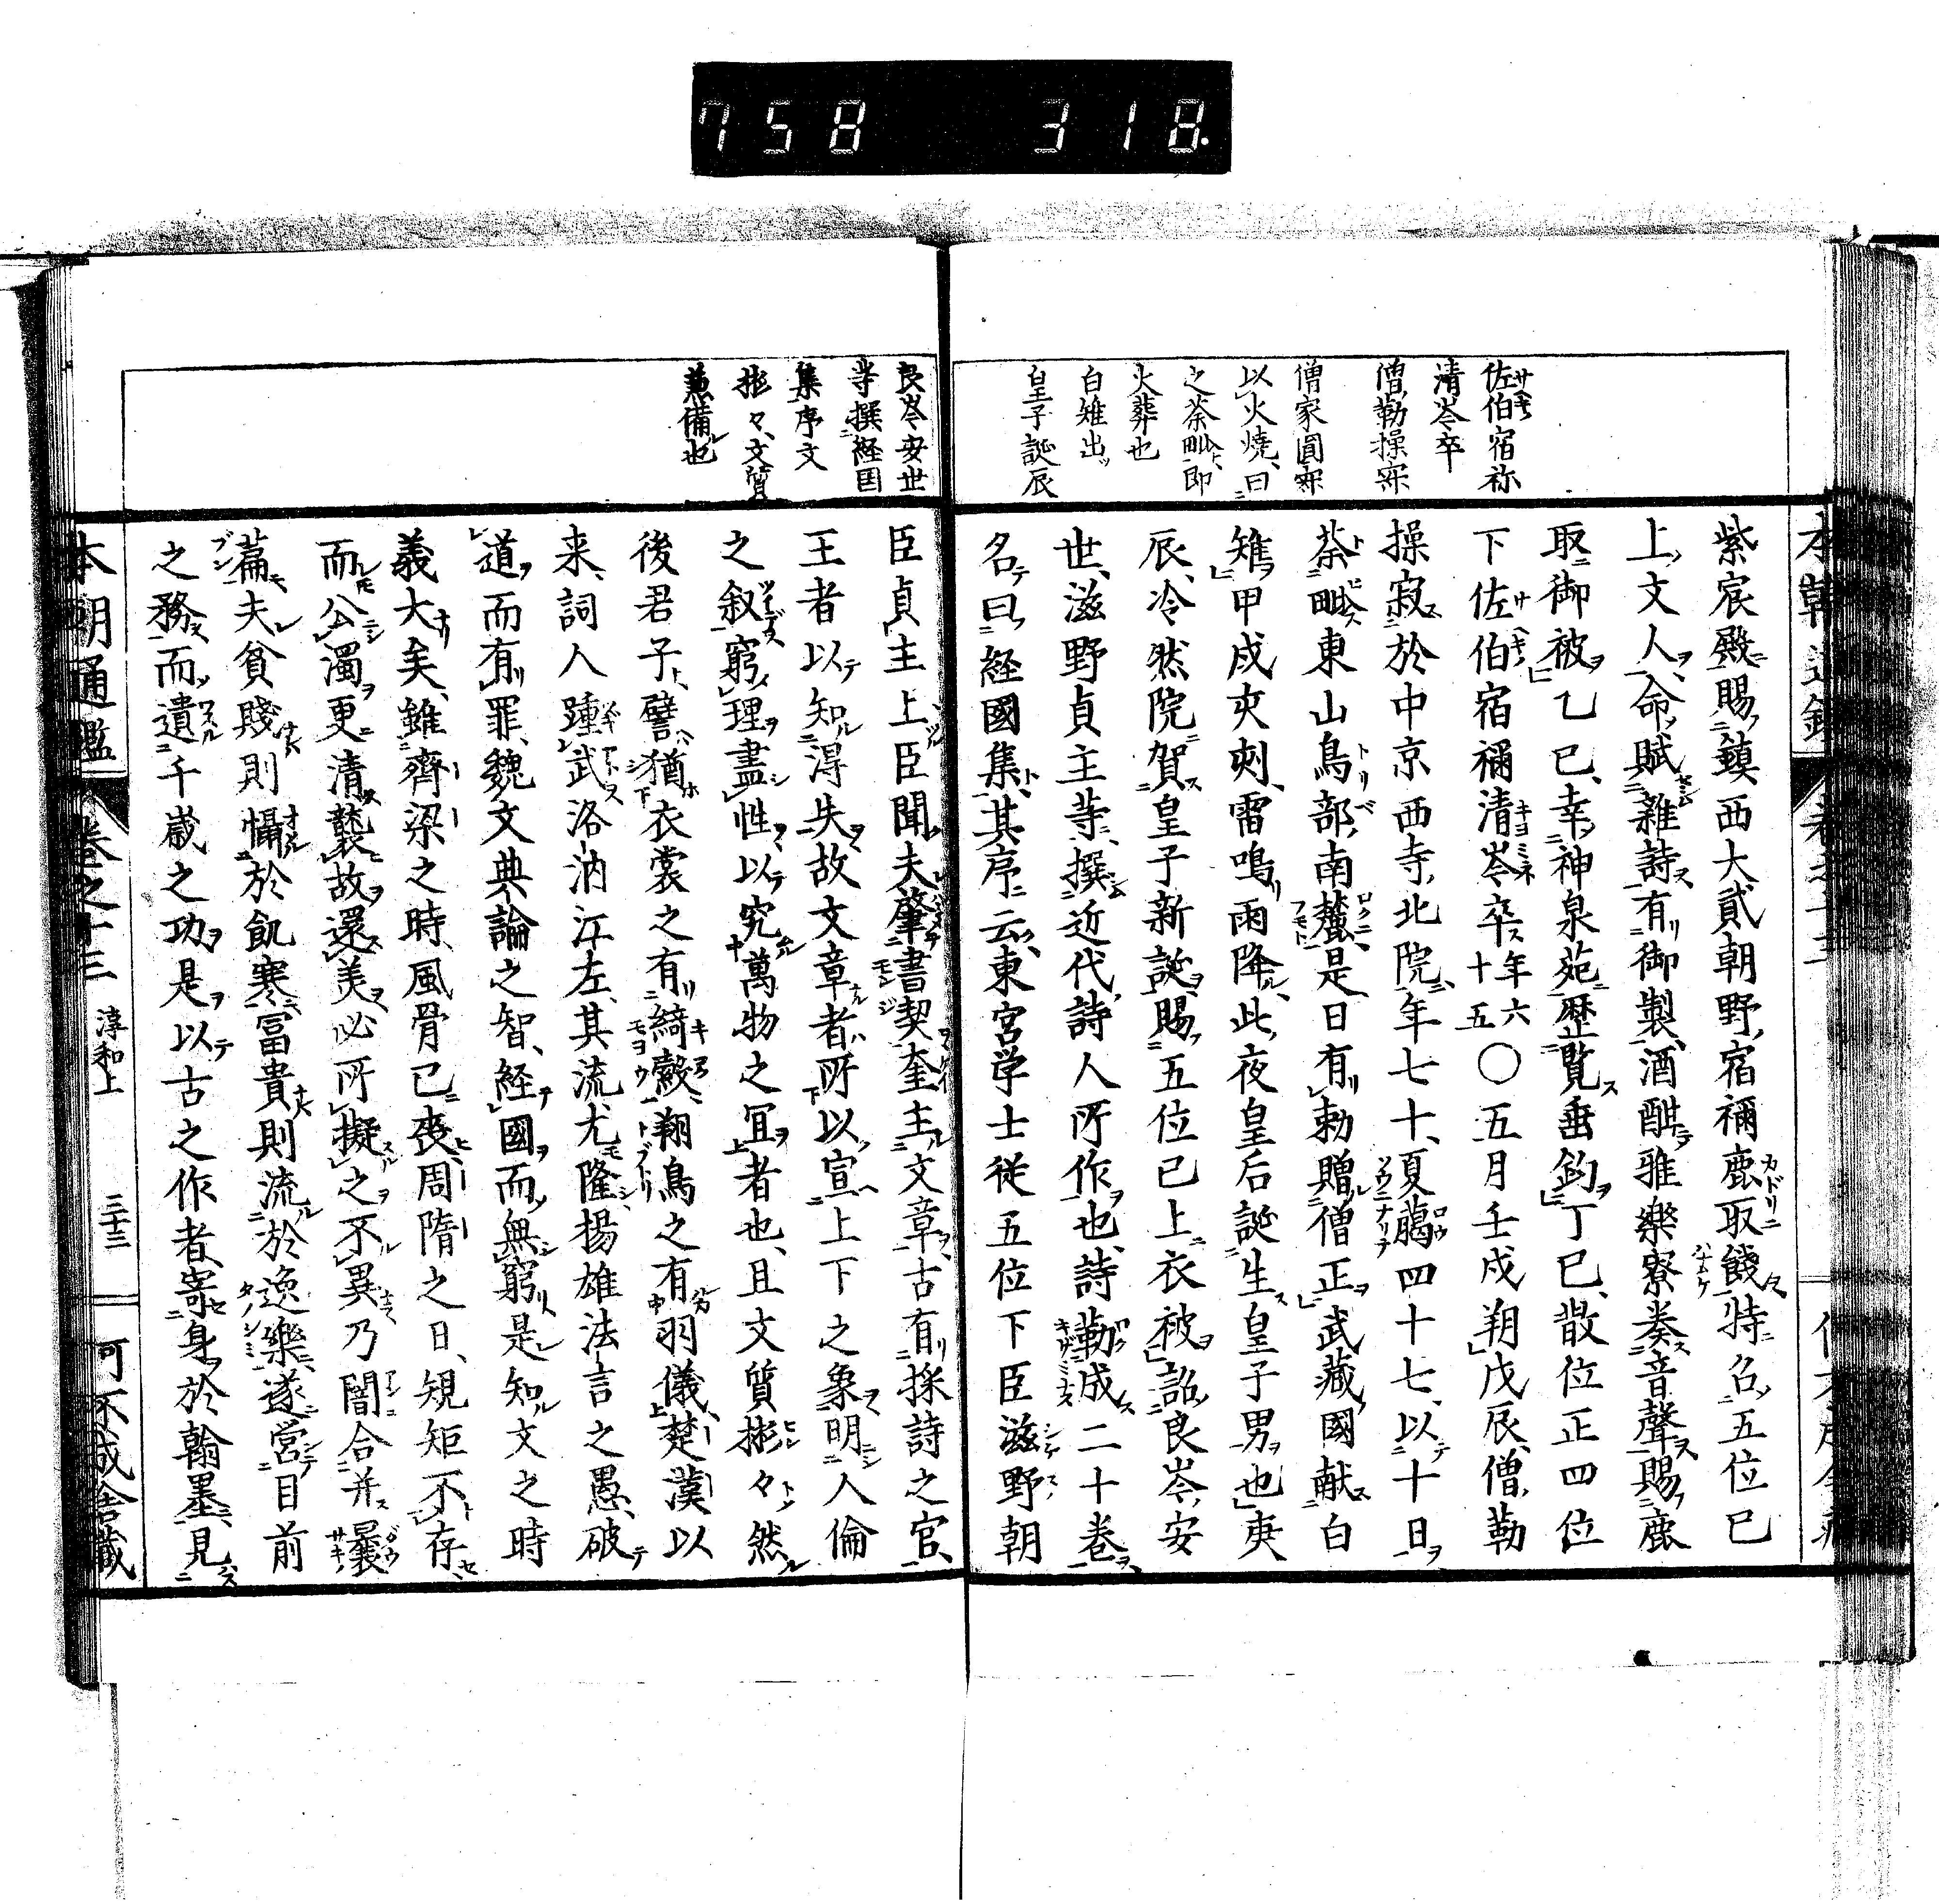 758 318.
佐伯宿祢
清岑卒
僧勤操寂
僧家圓寂
以火燒曰
之荼毗即
火葬也
白雉出
皇子誕辰
紫宸殿賜鎮西大貳朝野宿禰鹿取餞特召五位已
上文人命賦雜詩有御製酒酣雅樂寮奏音聲賜鹿
取御被乙巳幸神泉苑歴覧垂釣丁巳散位正四位
下佐伯宿禰清岑卒年六十五〇五月壬戌朔戊辰僧勤
操寂於中京西寺北院年七十夏﨟四十七以十日
荼毗東山鳥部南麓是日有勅贈僧正武藏國献白
雉甲戌夾刺雷鳴雨降此夜皇后誕生皇子男也庚
辰冷然院賀皇子新誕賜五位已上衣被詔良岑安
世滋野貞主等撰近代詩人所作也詩勒成二十卷
名曰経國集其序云東宮学士従五位下臣滋野朝
良岑安世
等撰経国
集序文
彬々文質
兼備也
臣貞主上臣聞夫肇書契奎主文章古有採詩之官
王者以知得失故文章者所以宣上下之象明人倫
之叙窮理盡性以究萬物之宜者也且文質彬々然
後君子譬猶衣裳之有綺縠翔鳥之有羽儀楚漢以
来詞人踵武洛汭江左其流尤隆揚雄法言之愚破
道而有罪魏文典論之智経國而無窮是知文之時
義大矣雖齊梁之時風骨已喪周隋之日規矩不存
而公濁更清襲故還美必所擬之不異乃闇合并曩
篇夫貧賤則懾於飢寒冨貴則流於逸樂遂営目前
之務而遺千歳之功是以古之作者寄身於翰墨見
本朝通鑑 卷之十三 淳和上 三十三 何不成舎藏